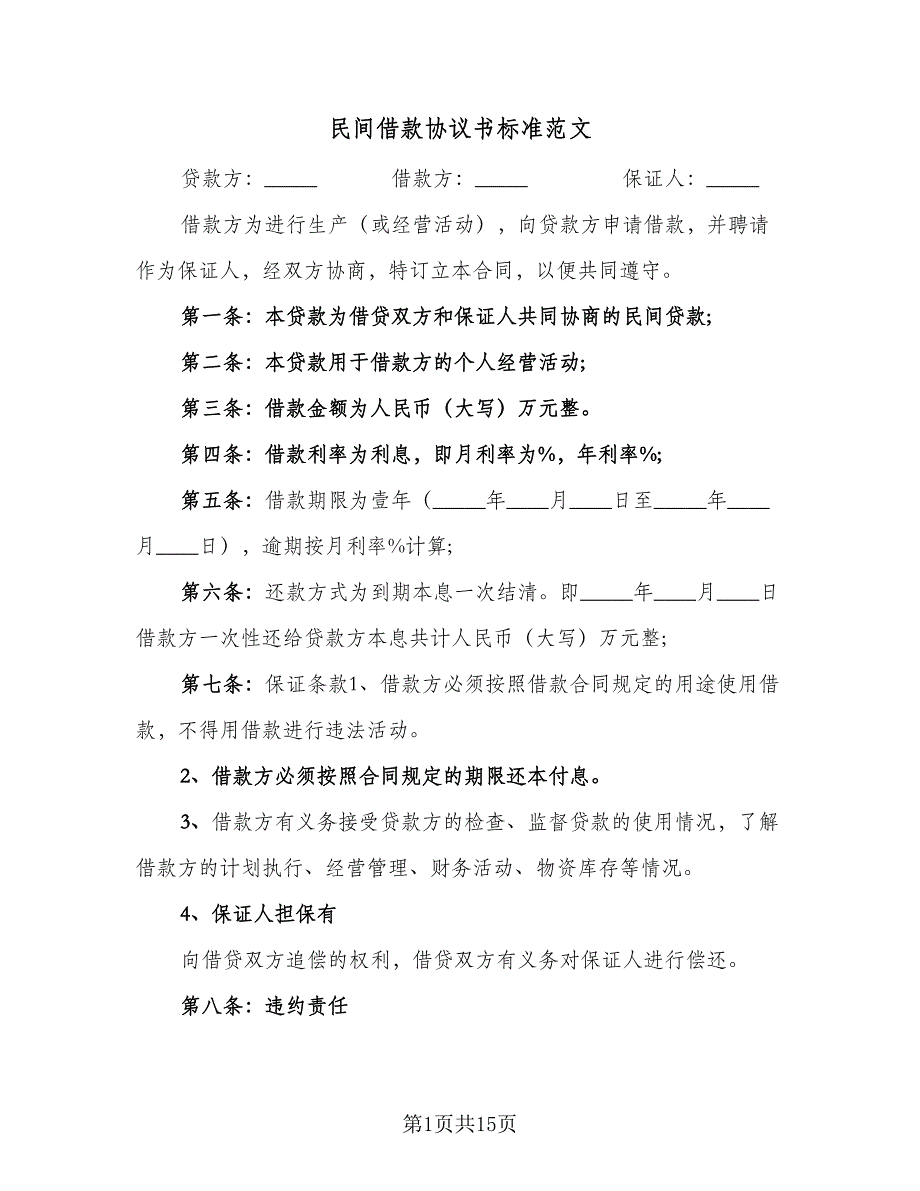 民间借款协议书标准范文
贷款方：_____ 借款方：_____ 保证人：_____
借款方为进行生产（或经营活动），向贷款方申请借款，并聘请
作为保证人，经双方协商，特订立本合同，以便共同遵守。
第一条：本贷款为借贷双方和保证人共同协商的民间贷款;
第二条：本贷款用于借款方的个人经营活动;
第三条：借款金额为人民币（大写）万元整。
第四条：借款利率为利息，即月利率为%，年利率%;
第五条：借款期限为壹年（_____年____月____日至_____年____
月____日），逾期按月利率%计算;
第六条：还款方式为到期本息一次结清。即_____年____月____日
借款方一次性还给贷款方本息共计人民币（大写）万元整;
第七条：保证条款1、借款方必须按照借款合同规定的用途使用借
款，不得用借款进行违法活动。
2、借款方必须按照合同规定的期限还本付息。
3、借款方有义务接受贷款方的检查、监督贷款的使用情况，了解
借款方的计划执行、经营管理、财务活动、物资库存等情况。
4、保证人担保有
向借贷双方追偿的权利，借贷双方有义务对保证人进行偿还。
第八条：违约责任
第1页共15页